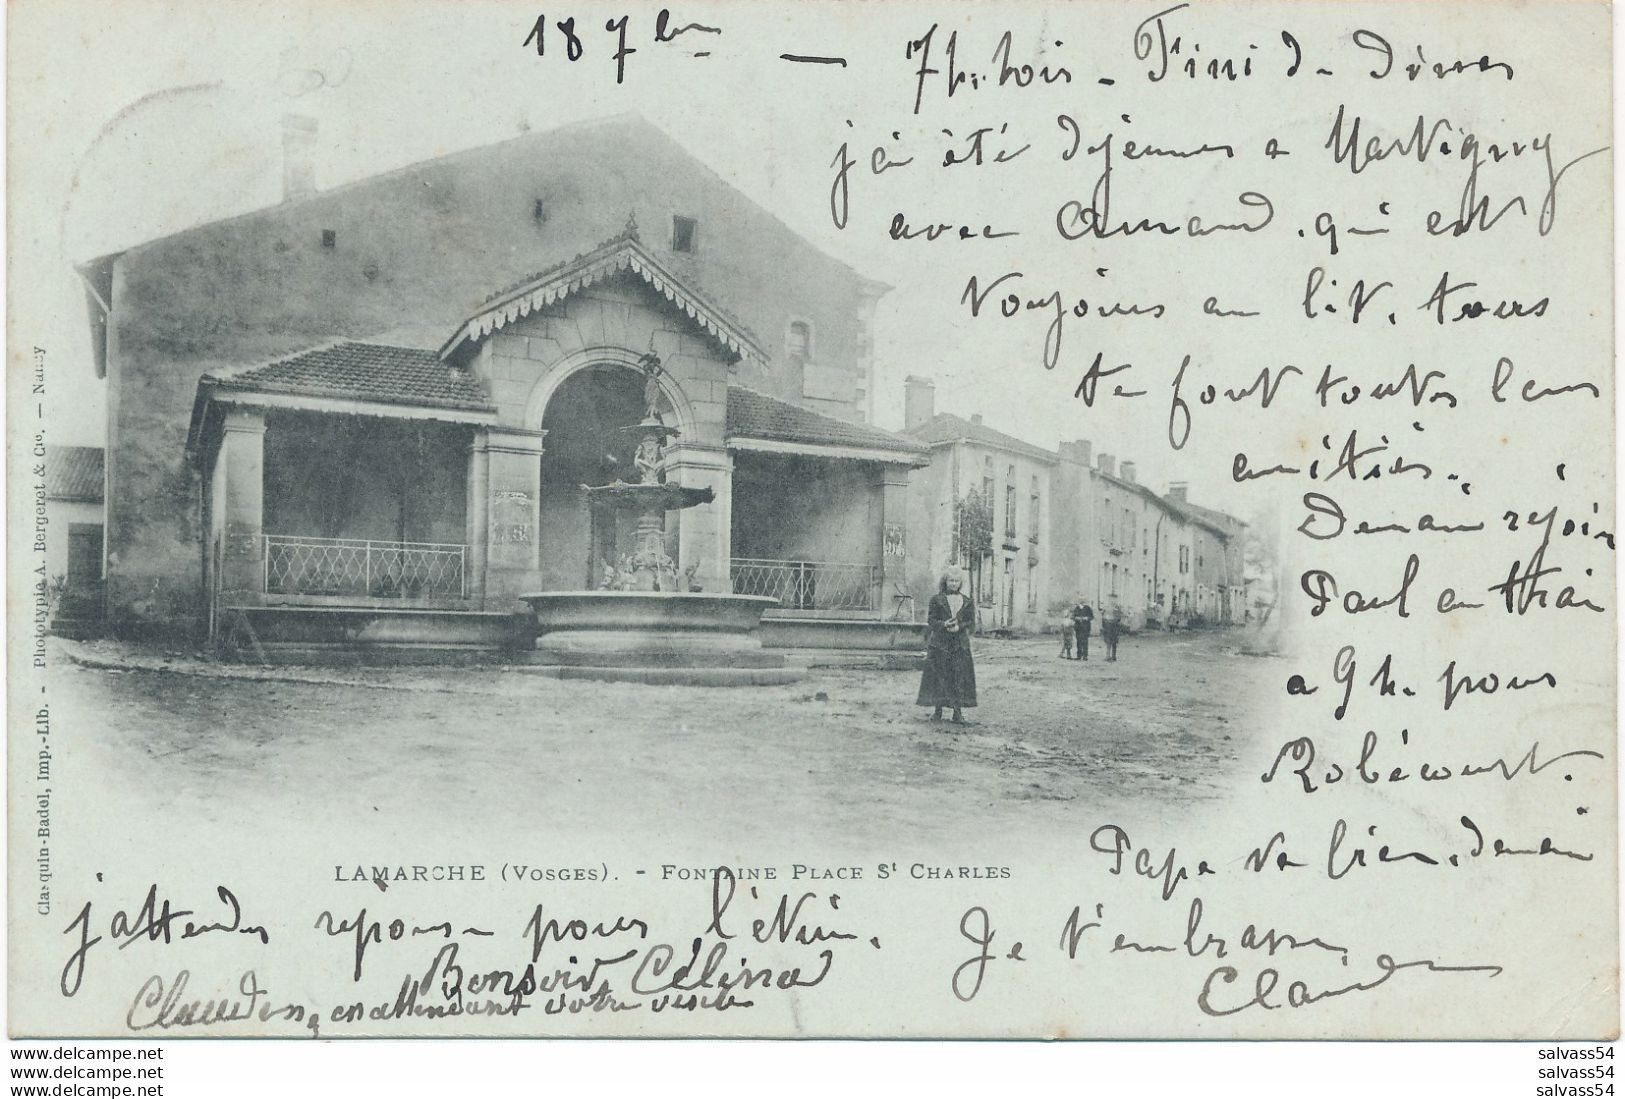 18 7bre — 7h. Soir - Fini de dîner
j'ai été déjeuner a Martigny
avec Amand. qui est
toujours au lit, tous
te font toutes leurs
amitiés.
Demain rejoins
Paul au train
a 9h. pour
Robécourt.
Papa va bien. demain
j'attends réponse pour l'étui. Je t'embrasse,
Claude
Bonsoir, Célina
en attendant votre visite
LAMARCHE (VOSGES). - FONTAINE PLACE St CHARLES
Clasquin-Badel, Imp.-Lib. - Phototypie A. Bergeret & Cie. — Nancy
www.delcampe.net
www.delcampe.net
www.delcampe.net
salvass54
salvass54
salvass54